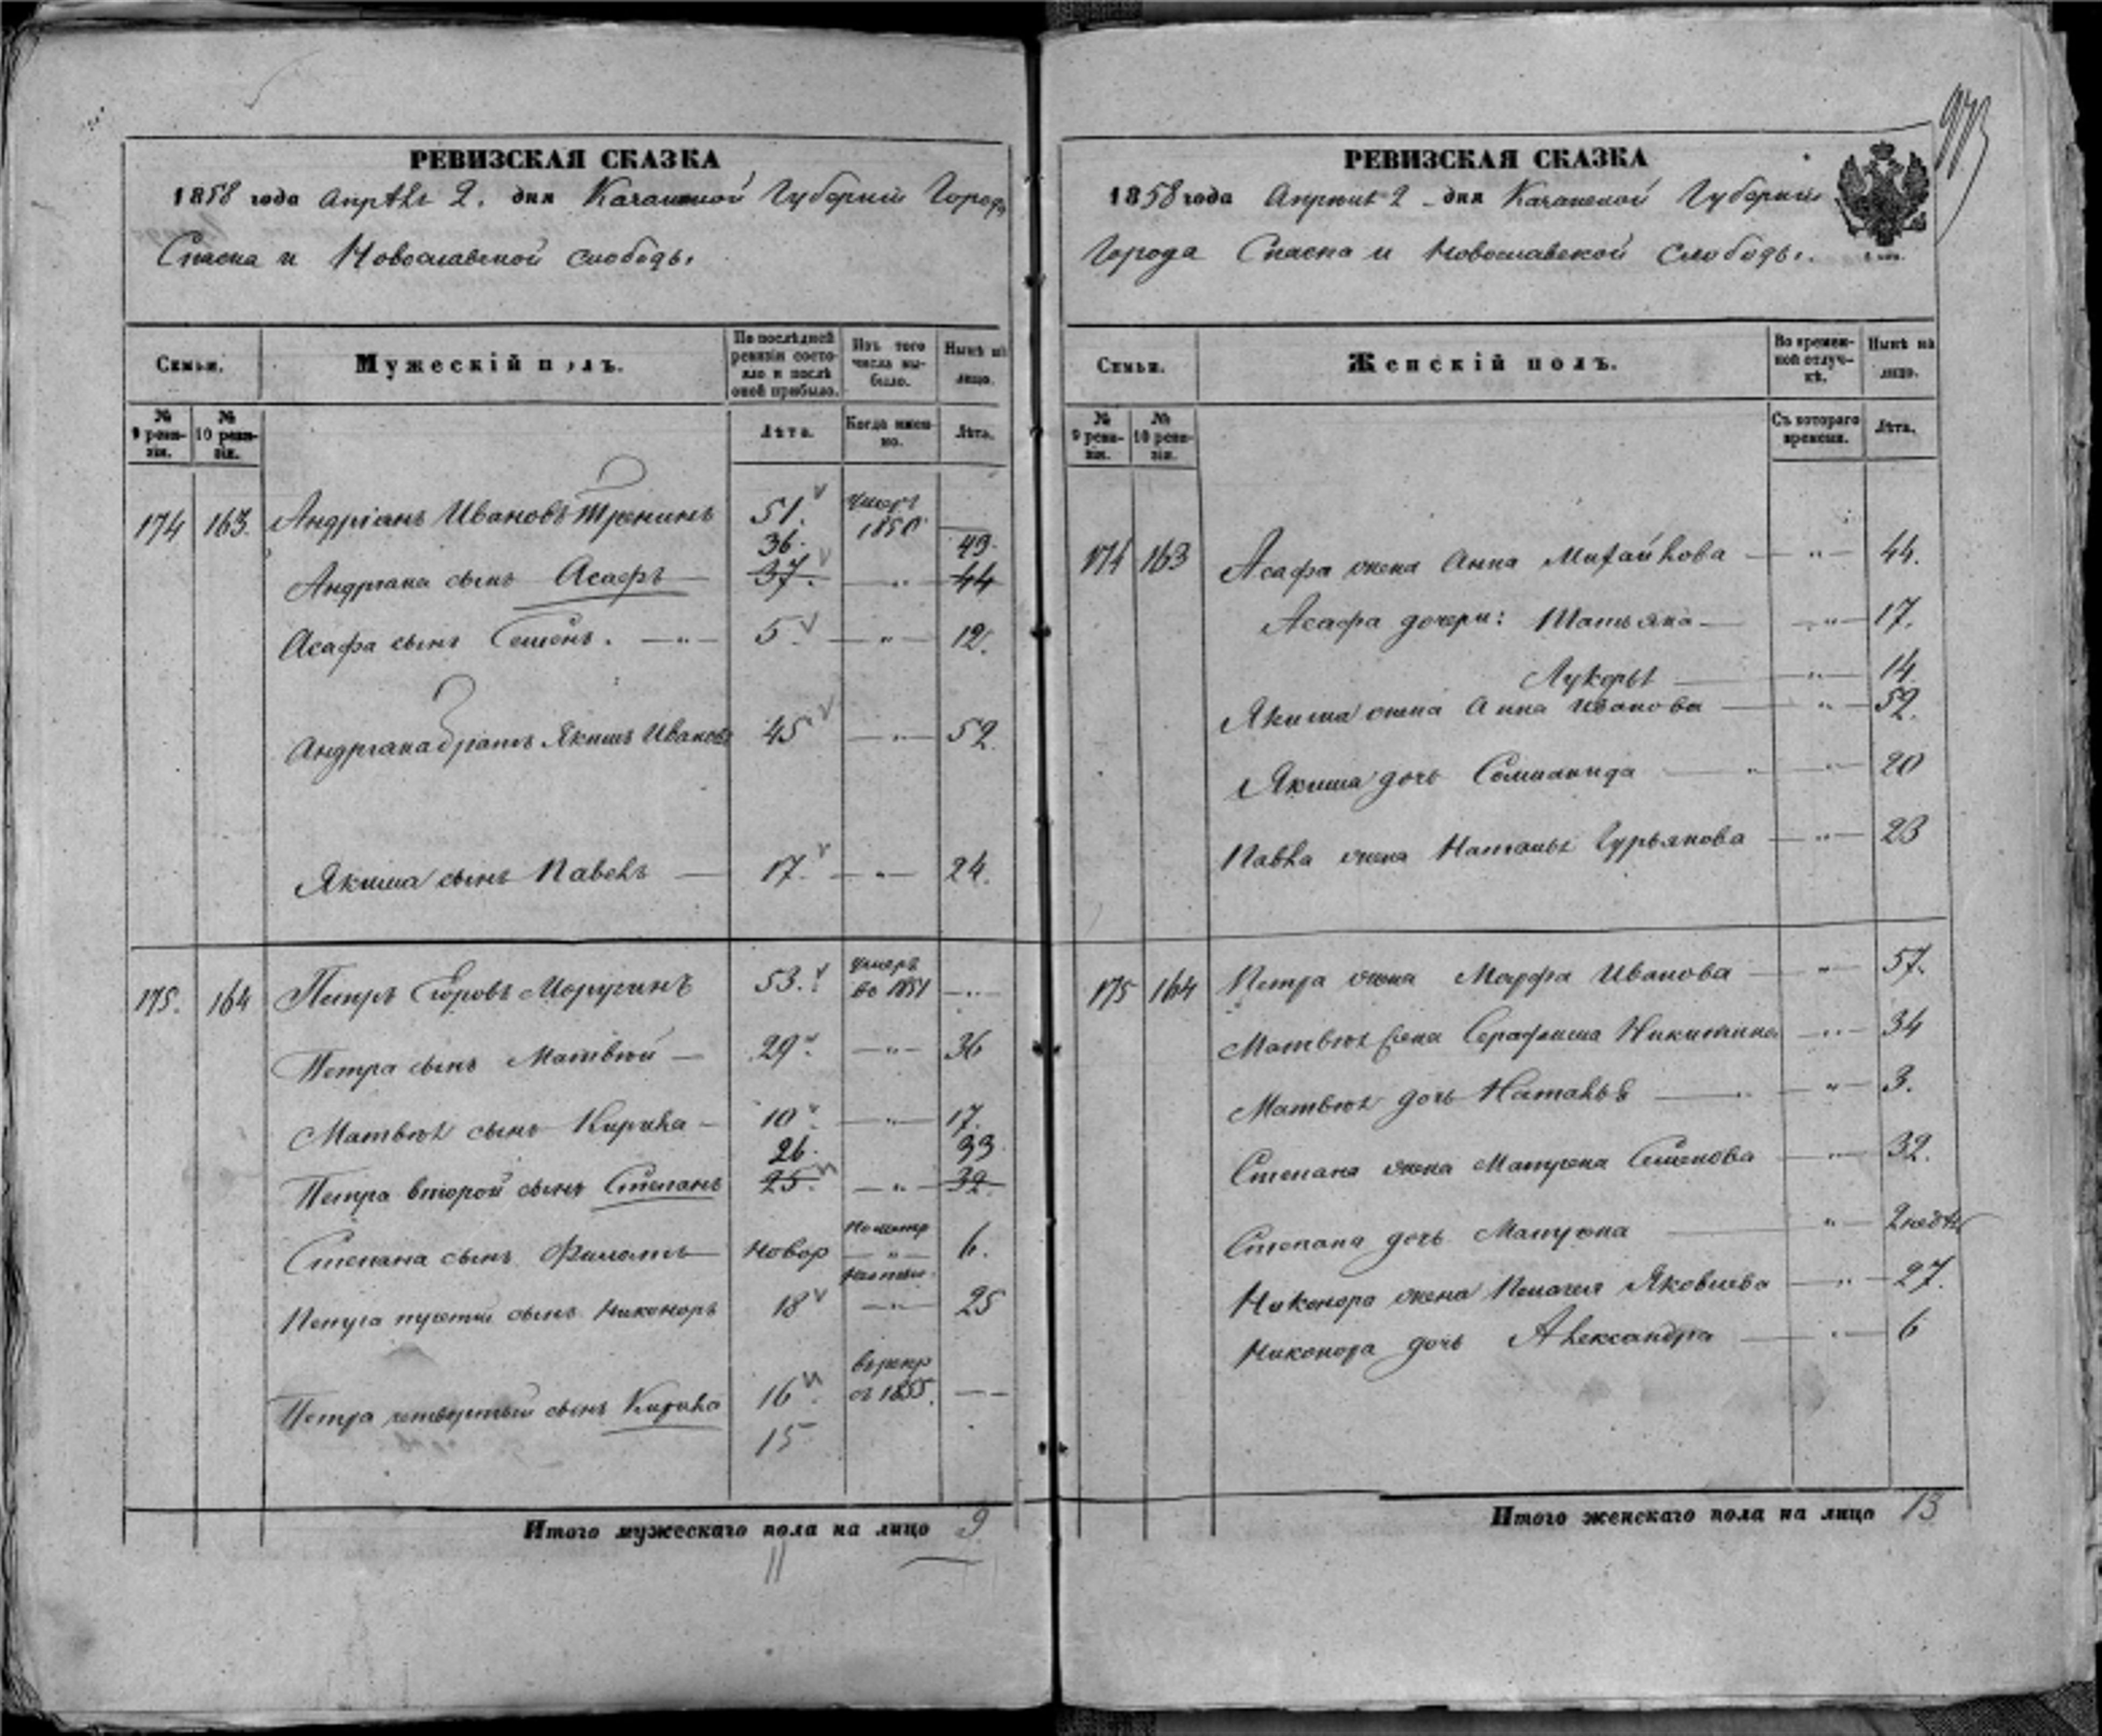 РЕВИЗСКАЯ СКАЗКА
1858 года Апрѣля 2. дня Казанской Губерніи Города
Спаска и Новославской слободы.
Семьи.
Мужескій полъ.
По послѣдней ревизіи состояло и послѣ оной прибыло.
Изъ того числа выбыло.
Нынѣ на лицо.
№ 9 ревизіи.
№ 10 ревизіи.
Лѣта.
Когда именно.
Лѣта.
174 163. Андріанъ Ивановъ Тренинъ 51. умеръ 1850
36. 43.
Андріана сынъ Асафъ — 37. — " — 44
Асафа сынъ Семенъ. — " — 5 — " — 12.
Андріана братъ Якимъ Ивановъ 45 — " — 52.
Якима сынъ Павелъ — 17. — " — 24.
175. 164 Петръ Егоровъ Моругинъ 53. умеръ во 1851 — " —
Петра сынъ Матвѣй — 29. — " — 36
Матвѣя сынъ Кирила — 10. — " — 17.
26. 33.
Петра второй сынъ Степанъ 25. — " — 32.
Степана сынъ Филатъ — новор — " — 6.
третій сынъ Никоноръ 18 — " — 25
Петра четвертый сынъ Кирила 16. въ рекр съ 1855. — —
15
Итого мужескаго пола на лицо 9
11
РЕВИЗСКАЯ СКАЗКА
1858 года Апрѣля 2 дня Казанской Губерніи
Города Спаска и Новославской Слободы.
Семьи.
Женскій полъ.
Во временной отлучкѣ.
Нынѣ на лицо.
№ 9 ревизіи.
№ 10 ревизіи.
Съ котораго времени.
Лѣта.
174 163 Асафа жена Анна Михайлова — " — 44.
Асафа дочери: Татьяна — " — 17.
Лукерья — " — 14
Якима жена Анна Иванова — " — 52.
Якима дочь Соломанида — " — 20
Павла жена Наталья Гурьянова — " — 23
175 164 Петра жена Марфа Иванова — " — 57.
Матвѣя жена Серафима Никитина — " — 34
Матвѣя дочь Наталья — " — 3.
Степана жена Матрена Семенова — " — 32.
Степана дочь Матрена — " 2 недѣл
Никонора жена Пелагея Яковлева — " — 27.
Никонора дочь Александра — " — 6
Итого женскаго пола на лицо 13